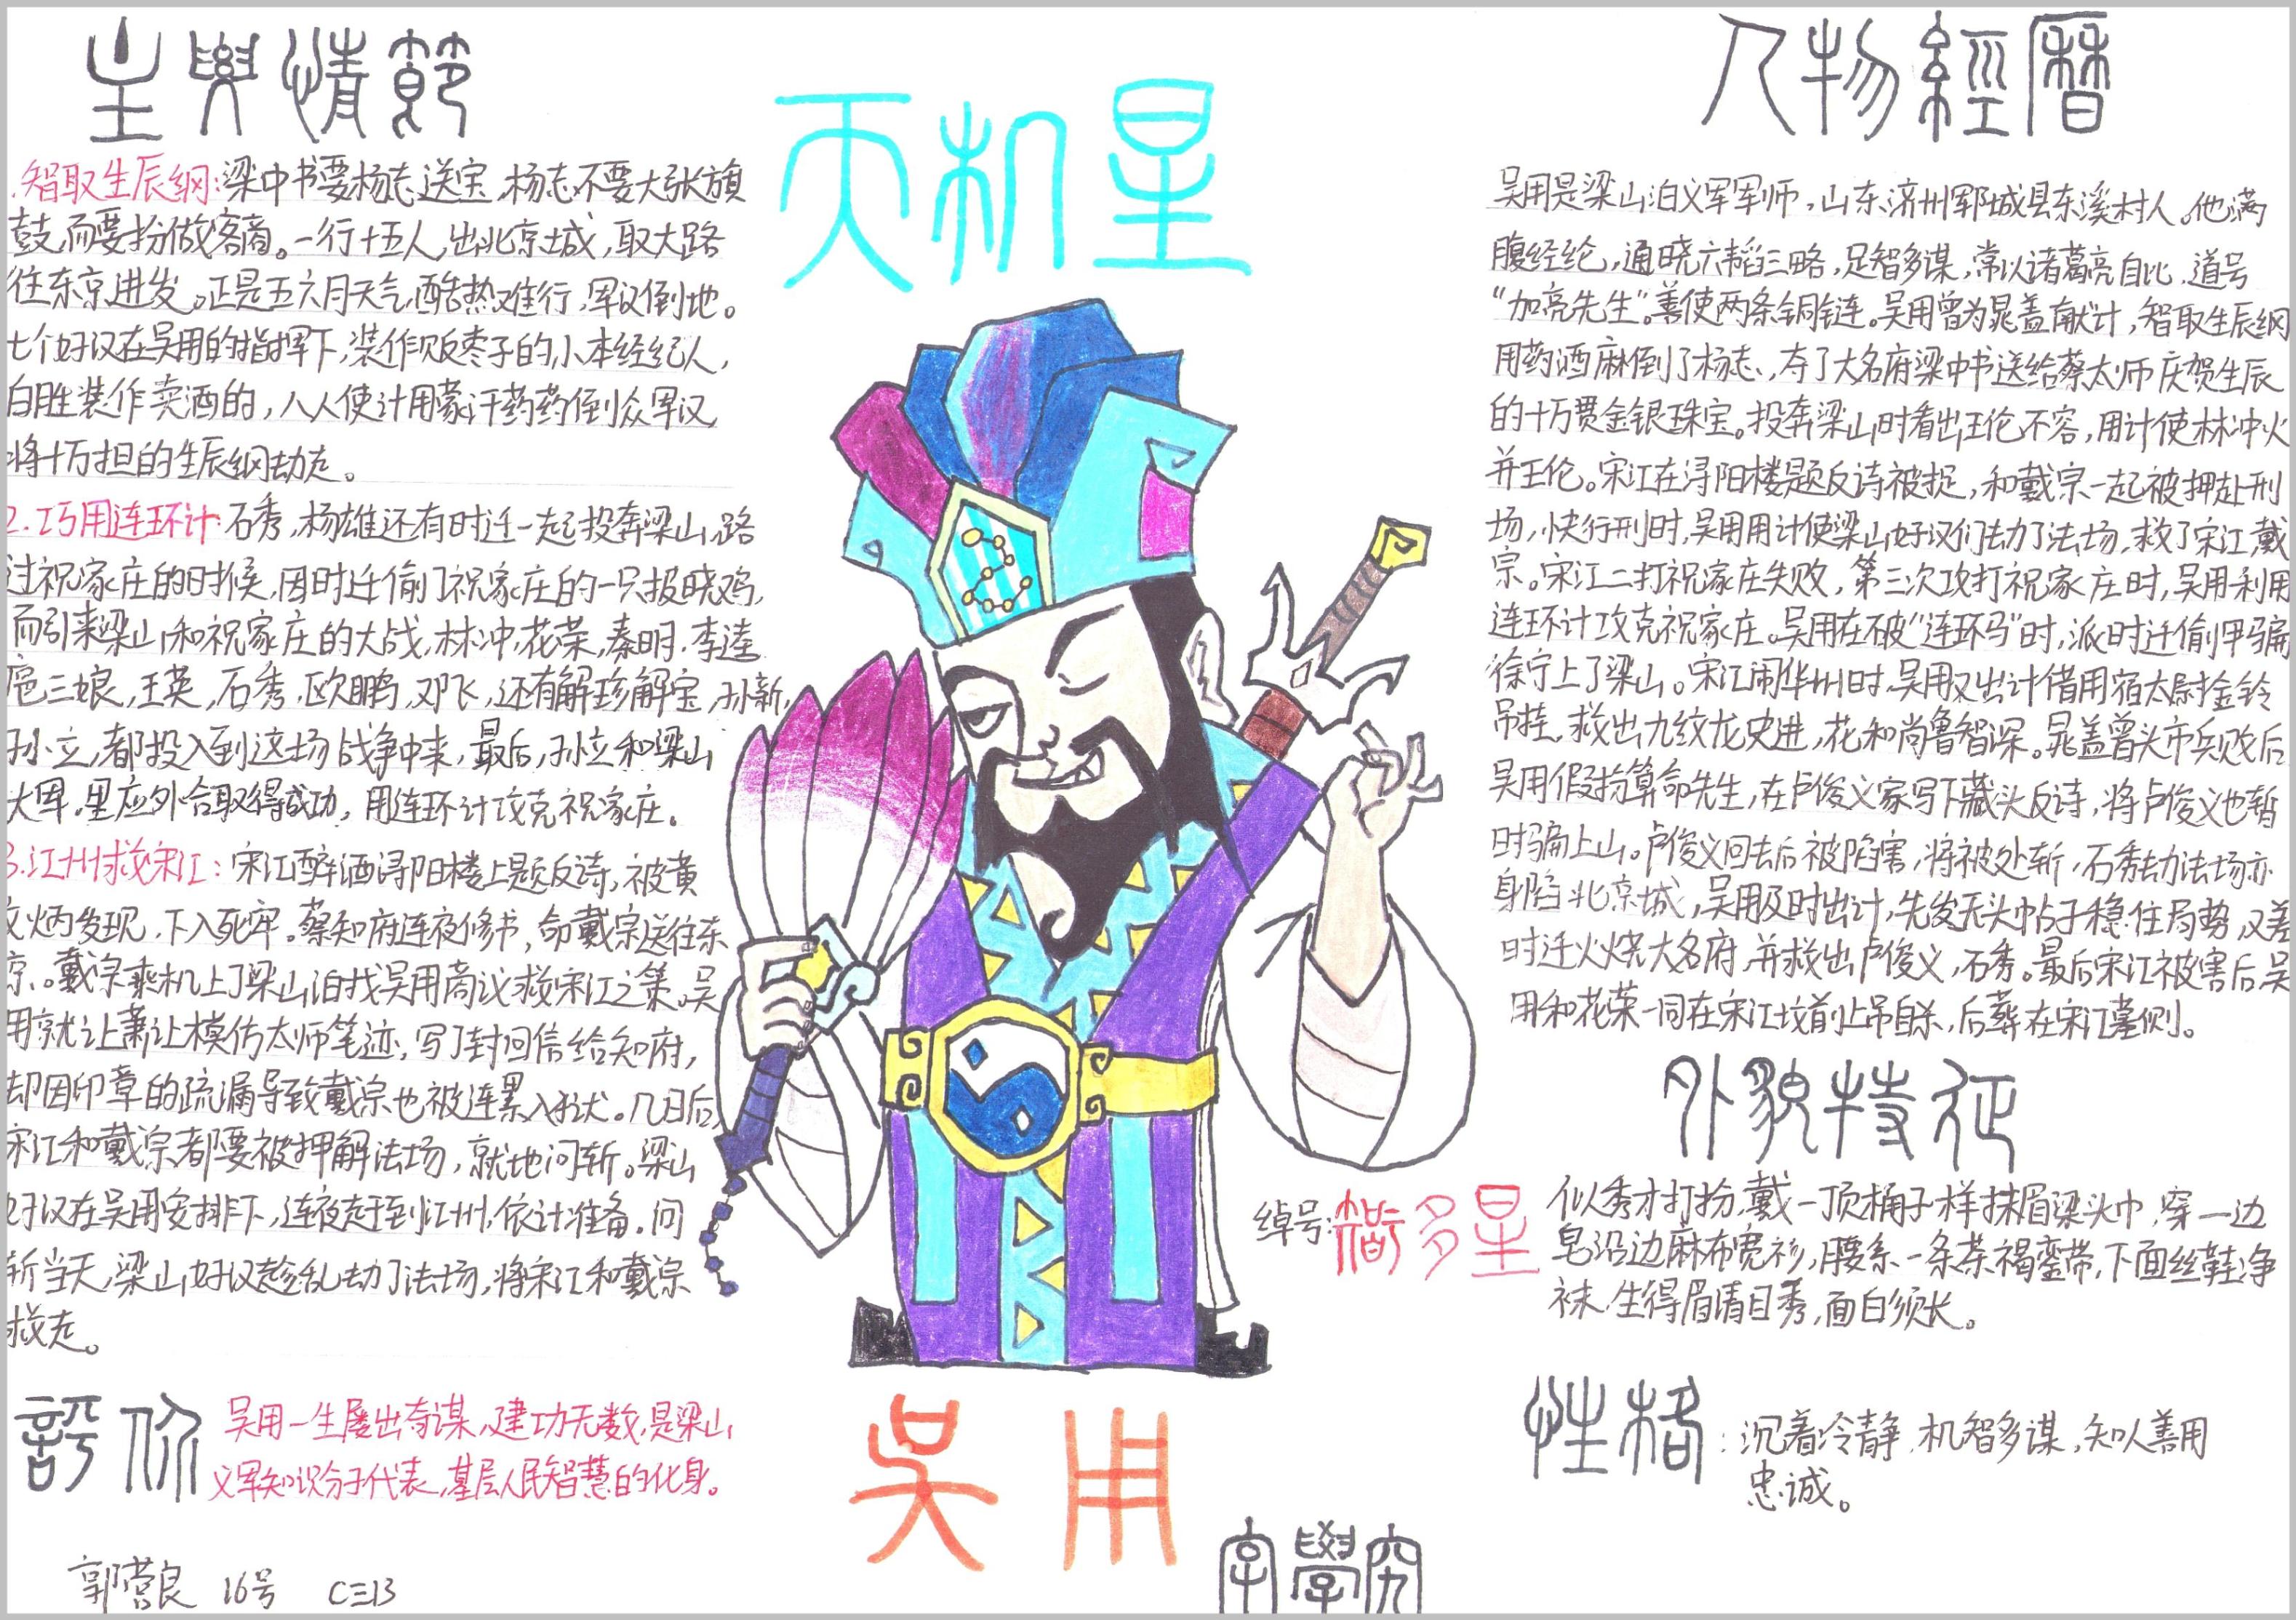 主要情節
.智取生辰纲:梁中书要杨志送宝,杨志不要大张旗
鼓,而要扮做客商。一行十五人,出北京城,取大路
往东京进发。正是五六月天气,酷热难行,军汉倒地。
七个好汉在吴用的指挥下,装作贩枣子的小本经纪人,
白胜装作卖酒的,八人使计用蒙汗药药倒众军汉,
将十万担的生辰纲劫走。
2.巧用连环计:石秀,杨雄还有时迁一起投奔梁山,路
过祝家庄的时候,因时迁偷了祝家庄的一只报晓鸡,
而引来梁山和祝家庄的大战,林冲,花荣,秦明.李逵
扈三娘,王英,石秀,欧鹏,邓飞,还有解珍解宝,孙新,
孙立,都投入到这场战争中来,最后,孙立和梁山
大军,里应外合取得成功,用连环计攻克祝家庄。
3.江州救宋江:宋江醉酒浔阳楼上题反诗,被黄
文炳发现,下入死牢。蔡知府连夜修书,命戴宗送往东
京。戴宗乘机上了梁山泊找吴用商议救宋江之策。吴
用就让萧让模仿太师笔迹,写了封回信给知府,
却因印章的疏漏导致戴宗也被连累入狱。几日后,
宋江和戴宗都要被押解法场,就地问斩。梁山
好汉在吴用安排下,连夜赶到江州,依计准备。问
斩当天,梁山好汉趁乱劫了法场,将宋江和戴宗
救走。
評价
吴用一生屡出奇谋,建功无数,是梁山
义军知识分子代表,基层人民智慧的化身。
16号 C三13
天机星
绰号:智多星
吴用
字學究
人物經曆
吴用是梁山泊义军军师,山东济州郓城县东溪村人。他满
腹经纶,通晓六韬三略,足智多谋,常以诸葛亮自比,道号
“加亮先生”。善使两条铜链。吴用曾为晁盖献计,智取生辰纲
用药酒麻倒了杨志,夺了大名府梁中书送给蔡太师庆贺生辰
的十万贯金银珠宝。投奔梁山时看出王伦不容,用计使林冲火
并王伦。宋江在浔阳楼题反诗被捉,和戴宗一起被押赴刑
场,快行刑时,吴用用计使梁山好汉们劫了法场,救了宋江,戴
宗。宋江二打祝家庄失败,第三次攻打祝家庄时,吴用利用
连环计攻克祝家庄。吴用在不被“连环马”时,派时迁偷甲骗
徐宁上了梁山。宋江闹华州时,吴用又出计借用宿太尉金铃
吊挂,救出九纹龙史进,花和尚鲁智深。晁盖曾头市兵败后
吴用假扮算命先生,在卢俊义家写下藏头反诗,将卢俊义也暂
时骗上山。卢俊义回去后被陷害,将被处斩,石秀劫法场亦
身陷北京城,吴用及时出计,先发无头帖子稳住局势,又差
时迁火烧大名府,并救出卢俊义,石秀。最后宋江被害后,吴
用和花荣一同在宋江坟前上吊自杀,后葬在宋江墓侧。
外貌特征
似秀才打扮,戴一顶桶子样抹眉梁头巾,穿一边
皂沿边麻布宽衫,腰系一条茶褐銮带,下面丝鞋净
袜,生得眉清目秀,面白须长。
性格:沉着冷静,机智多谋,知人善用
忠诚。